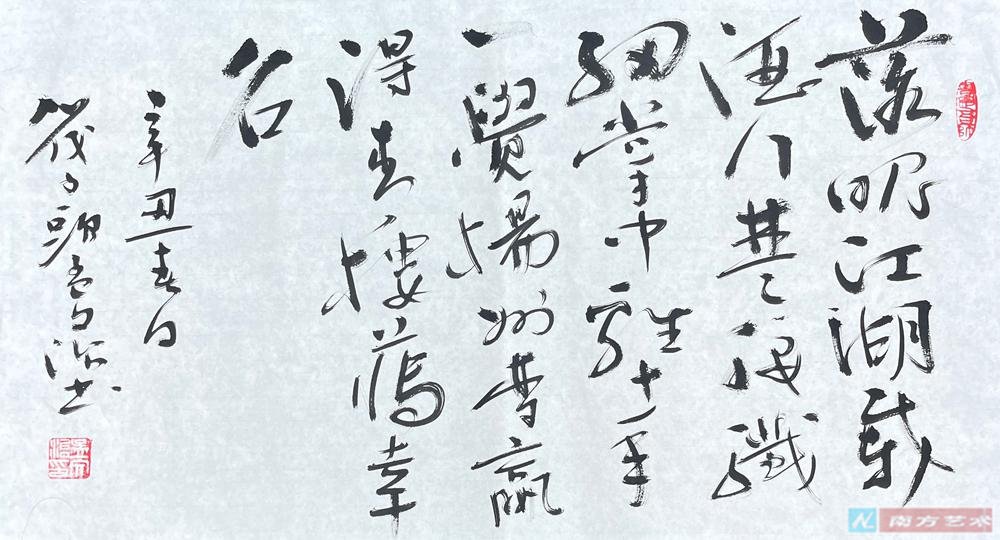 落魄江湖載
酒行楚腰纖
細掌中輕十年
一覺揚州夢贏
得青樓薄幸
名
辛丑春日
南方艺术